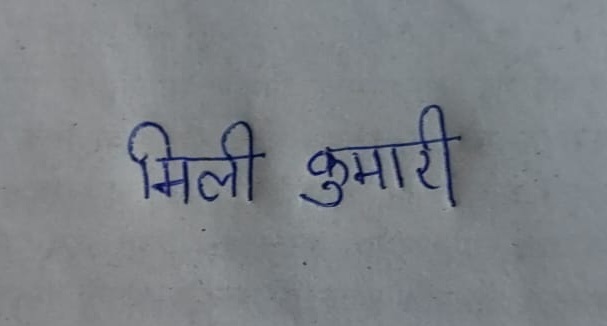 मिली कुमारी